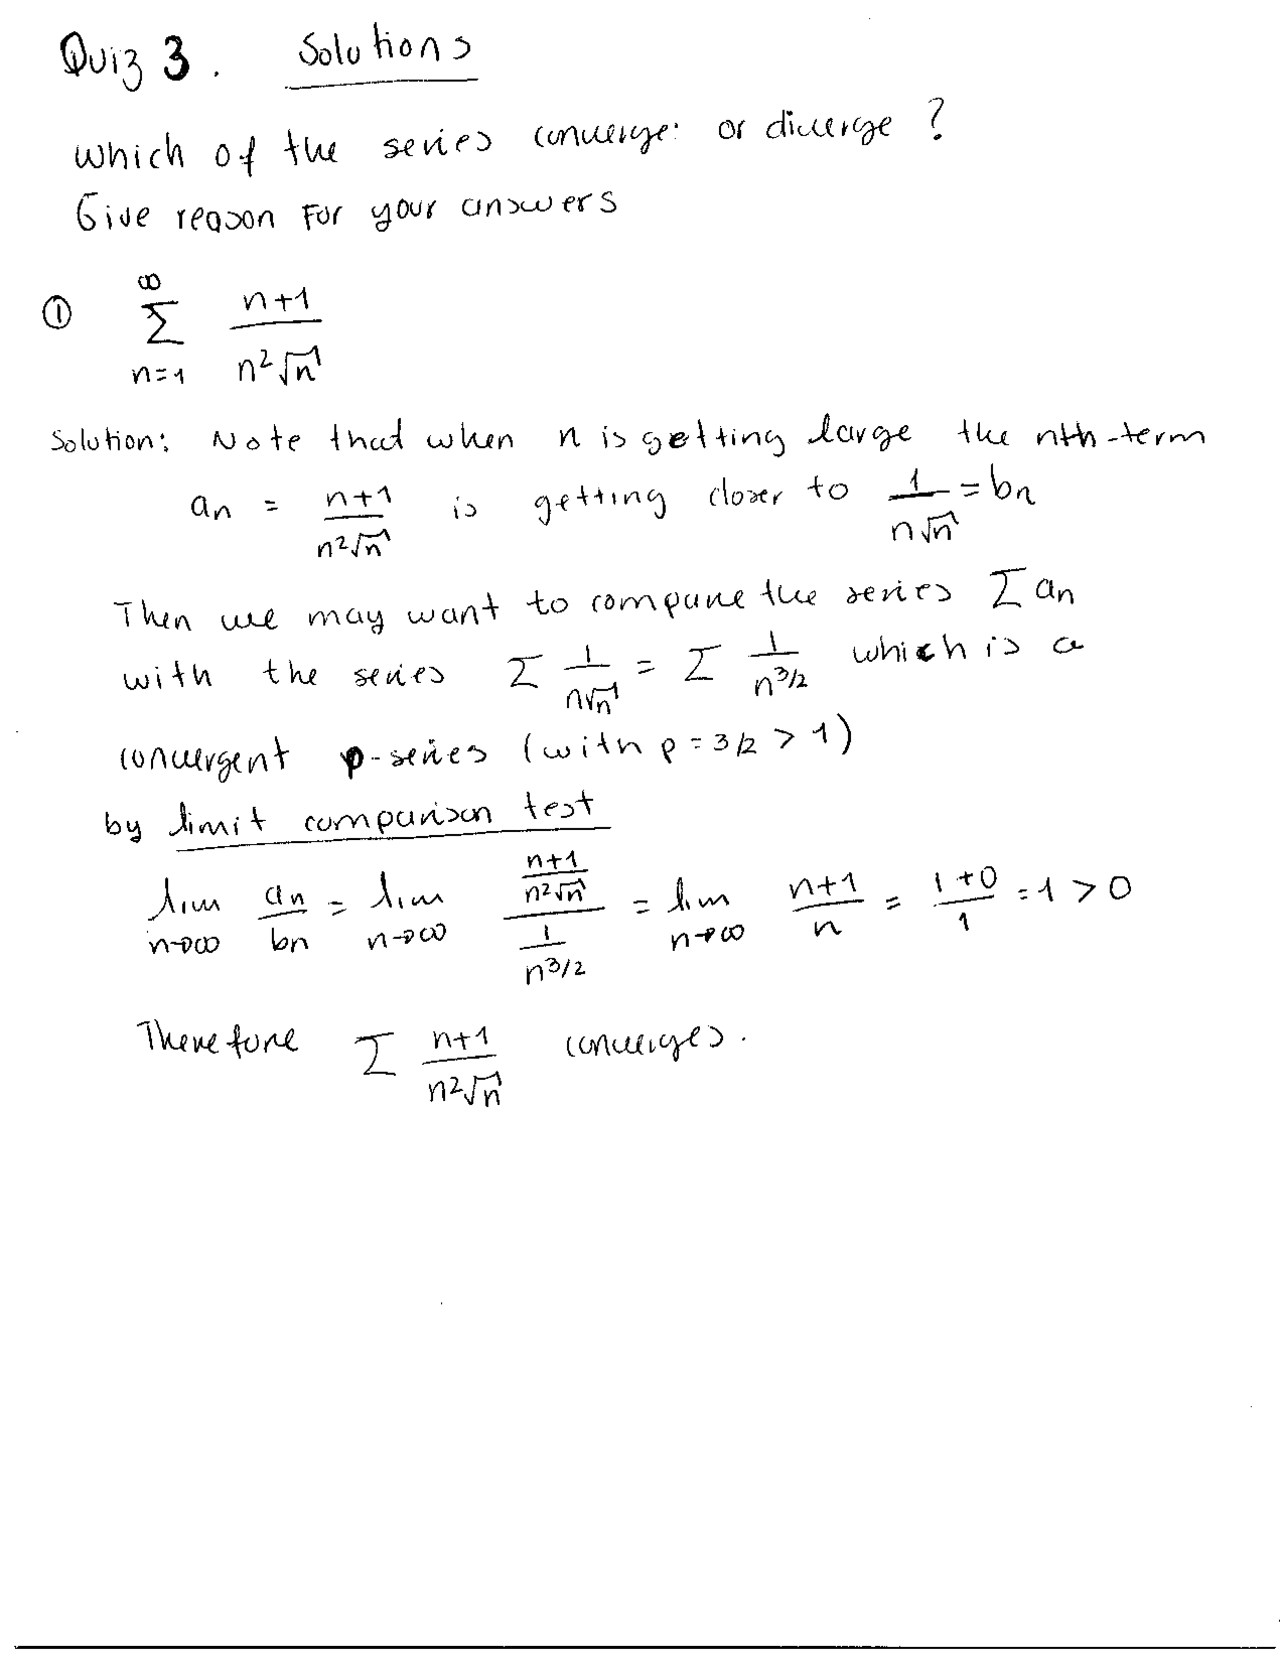 Quiz 3. Solutions
Which of the series converge: or diverge?
Give reason For your answers
① ∑_{n=1}^{∞} (n+1)/(n²√n)
Solution: Note that when n is getting large the nth-term
an = (n+1)/(n²√n) is getting closer to 1/(n√n) = bn
Then we may want to compare the series ∑ an
with the series ∑ 1/(n√n) = ∑ 1/n^{3/2} which is a
convergent p-series (with p = 3/2 > 1)
by limit comparison test
lim_{n→∞} an/bn = lim_{n→∞} ((n+1)/(n²√n))/(1/n^{3/2}) = lim_{n→∞} (n+1)/n = (1+0)/1 = 1 > 0
Therefore ∑ (n+1)/(n²√n) converges.